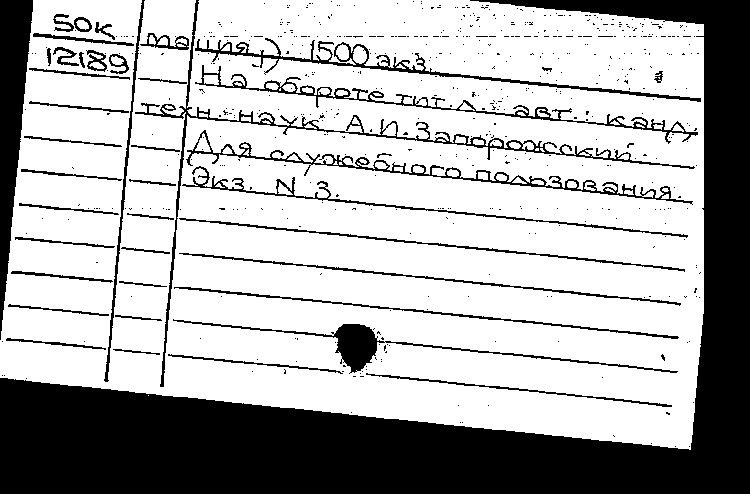 50к
12189
мация). 1500 экз.
На обороте тит. л.: авт.: канд.
техн. наук А.И. Запорожский.
Для служебного пользования.
Экз. N 3.